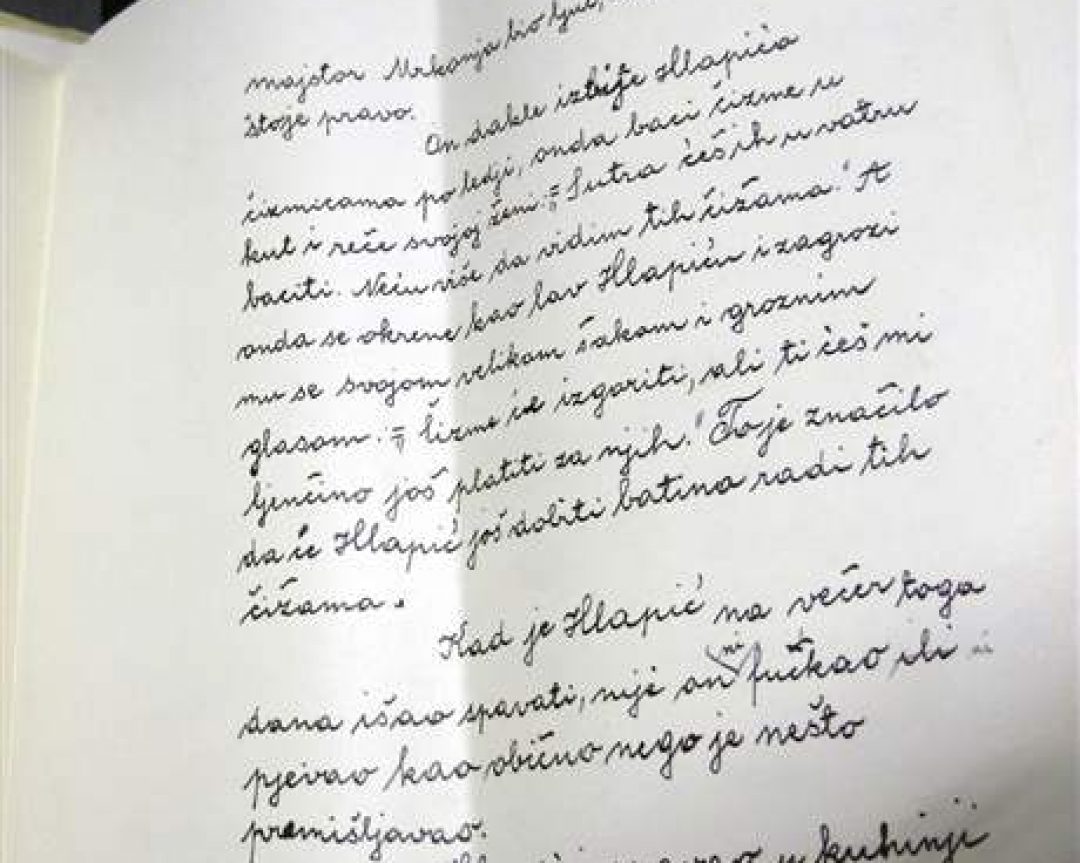 majstor Mrkonja bio ljut,
štoje pravo.
On dakle izbije Hlapića
čizmicama po ledji, onda baci čizme u
kut i reče svojoj ženi: „Sutra ćeš ih u vatru
baciti. Neću više da vidim tih čižama." A
onda se okrene kao lav Hlapiću i zagrozi
mu se svojom velikom šakom i groznim
glasom: „Čizme će izgoriti, ali ti ćeš mi
ljenčino još platiti za njih." To je značilo
da će Hlapić još dobiti batina radi tih
čižama.
Kad je Hlapić na večer toga
dana išao spavati, nije on ni fučkao ili ni
pjevao kao obično nego je nešto
premišljavao.
u kuhinji